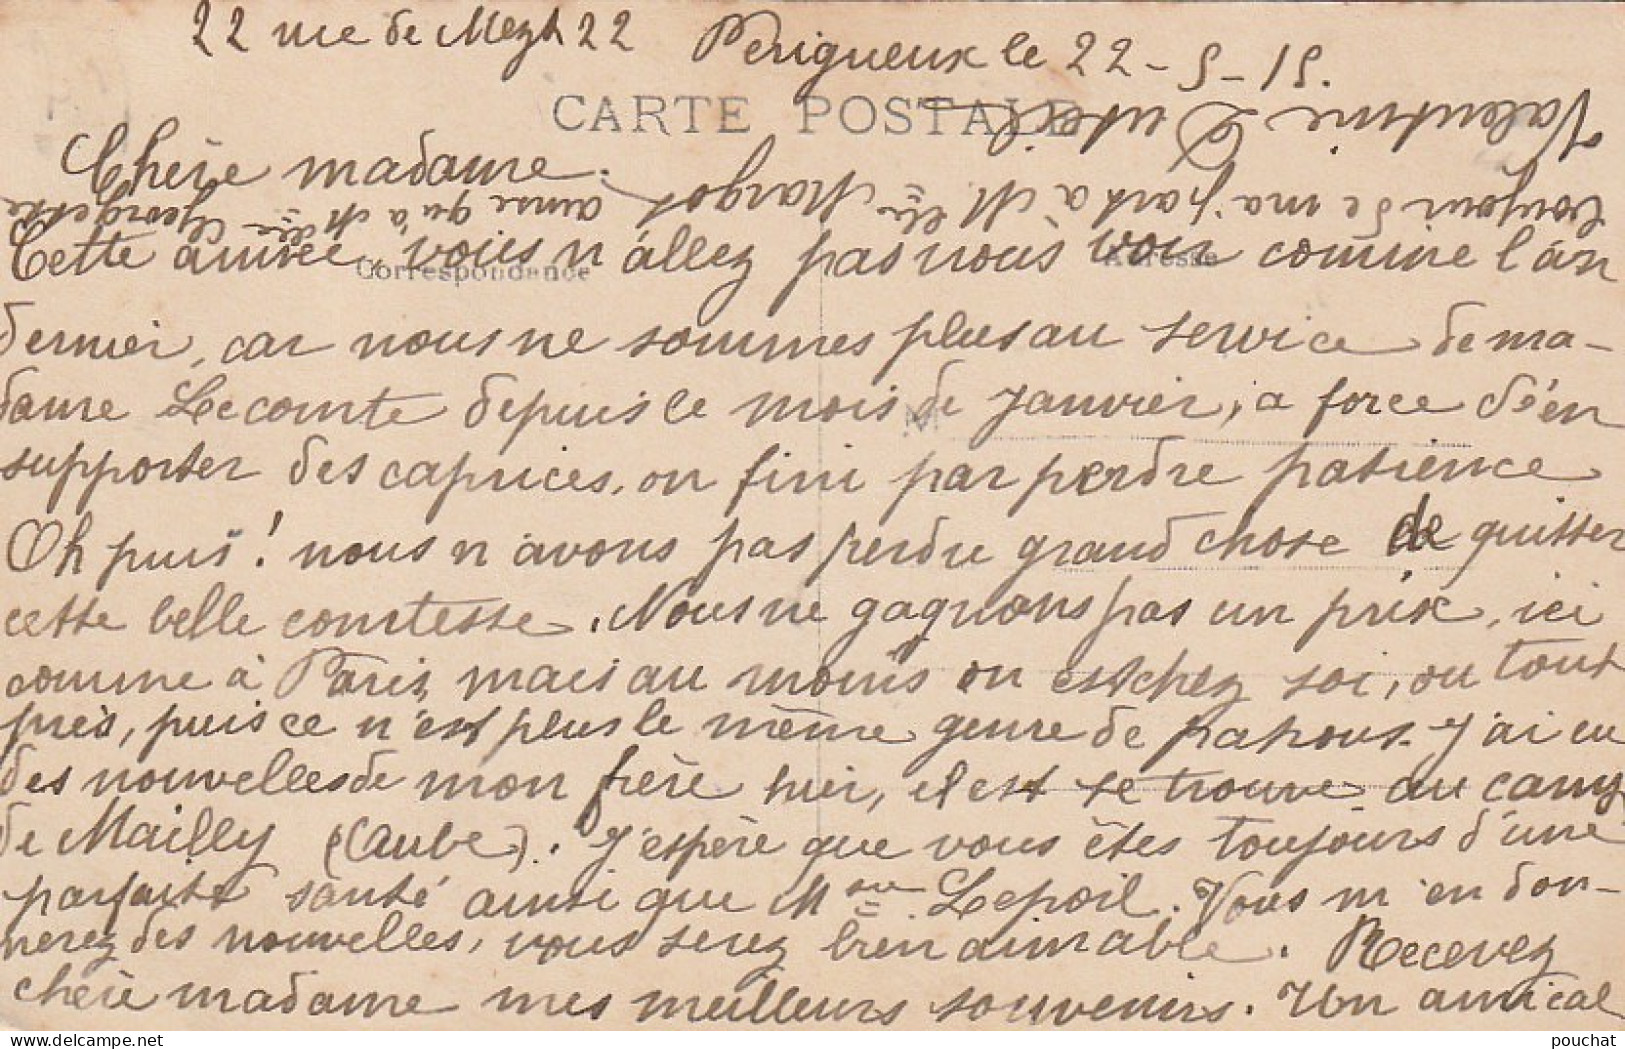 22 rue de Metz 22 Périgueux le 22-5-15.
CARTE POSTALE
Chère madame.
Correspondance
Adresse
Cette année, vous n'allez pas nous voir comme l'an
dernier, car nous ne sommes plus au service de ma-
dame Lecomte depuis le mois de Janvier, a force d'en
supporter des caprices, on fini par perdre patience
Oh puis! nous n'avons pas perdu grand chose de quitter
cette belle comtesse. Nous ne gagnons pas un prix, ici
comme à Paris, mais au moins on est chez soi, ou tout
près, puis ce n'est plus le même genre de patrons. J'ai eu
des nouvelles de mon frère hier, il est se trouve au camp
de Mailly (Aube). J'espère que vous êtes toujours d'une
parfaite santé ainsi que Mr Lepoil. Vous m'en don-
nerez des nouvelles, vous serez bien aimable. Recevez
chère madame mes meilleurs souvenirs. Un amical
bonjour de ma part à Mlle Margot
ainsi qu'à Mlle Georgette
Valentine Duteil
pouchat